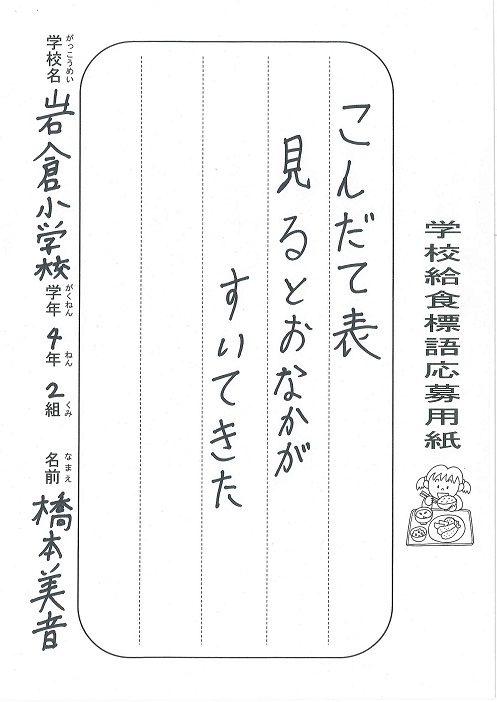 学校給食標語応募用紙
こんだて表
見るとおなかが
すいてきた
がっこうめい がくねん ねん くみ なまえ
学校名 岩倉小学校 学年 4年 2組 名前 橋本美音